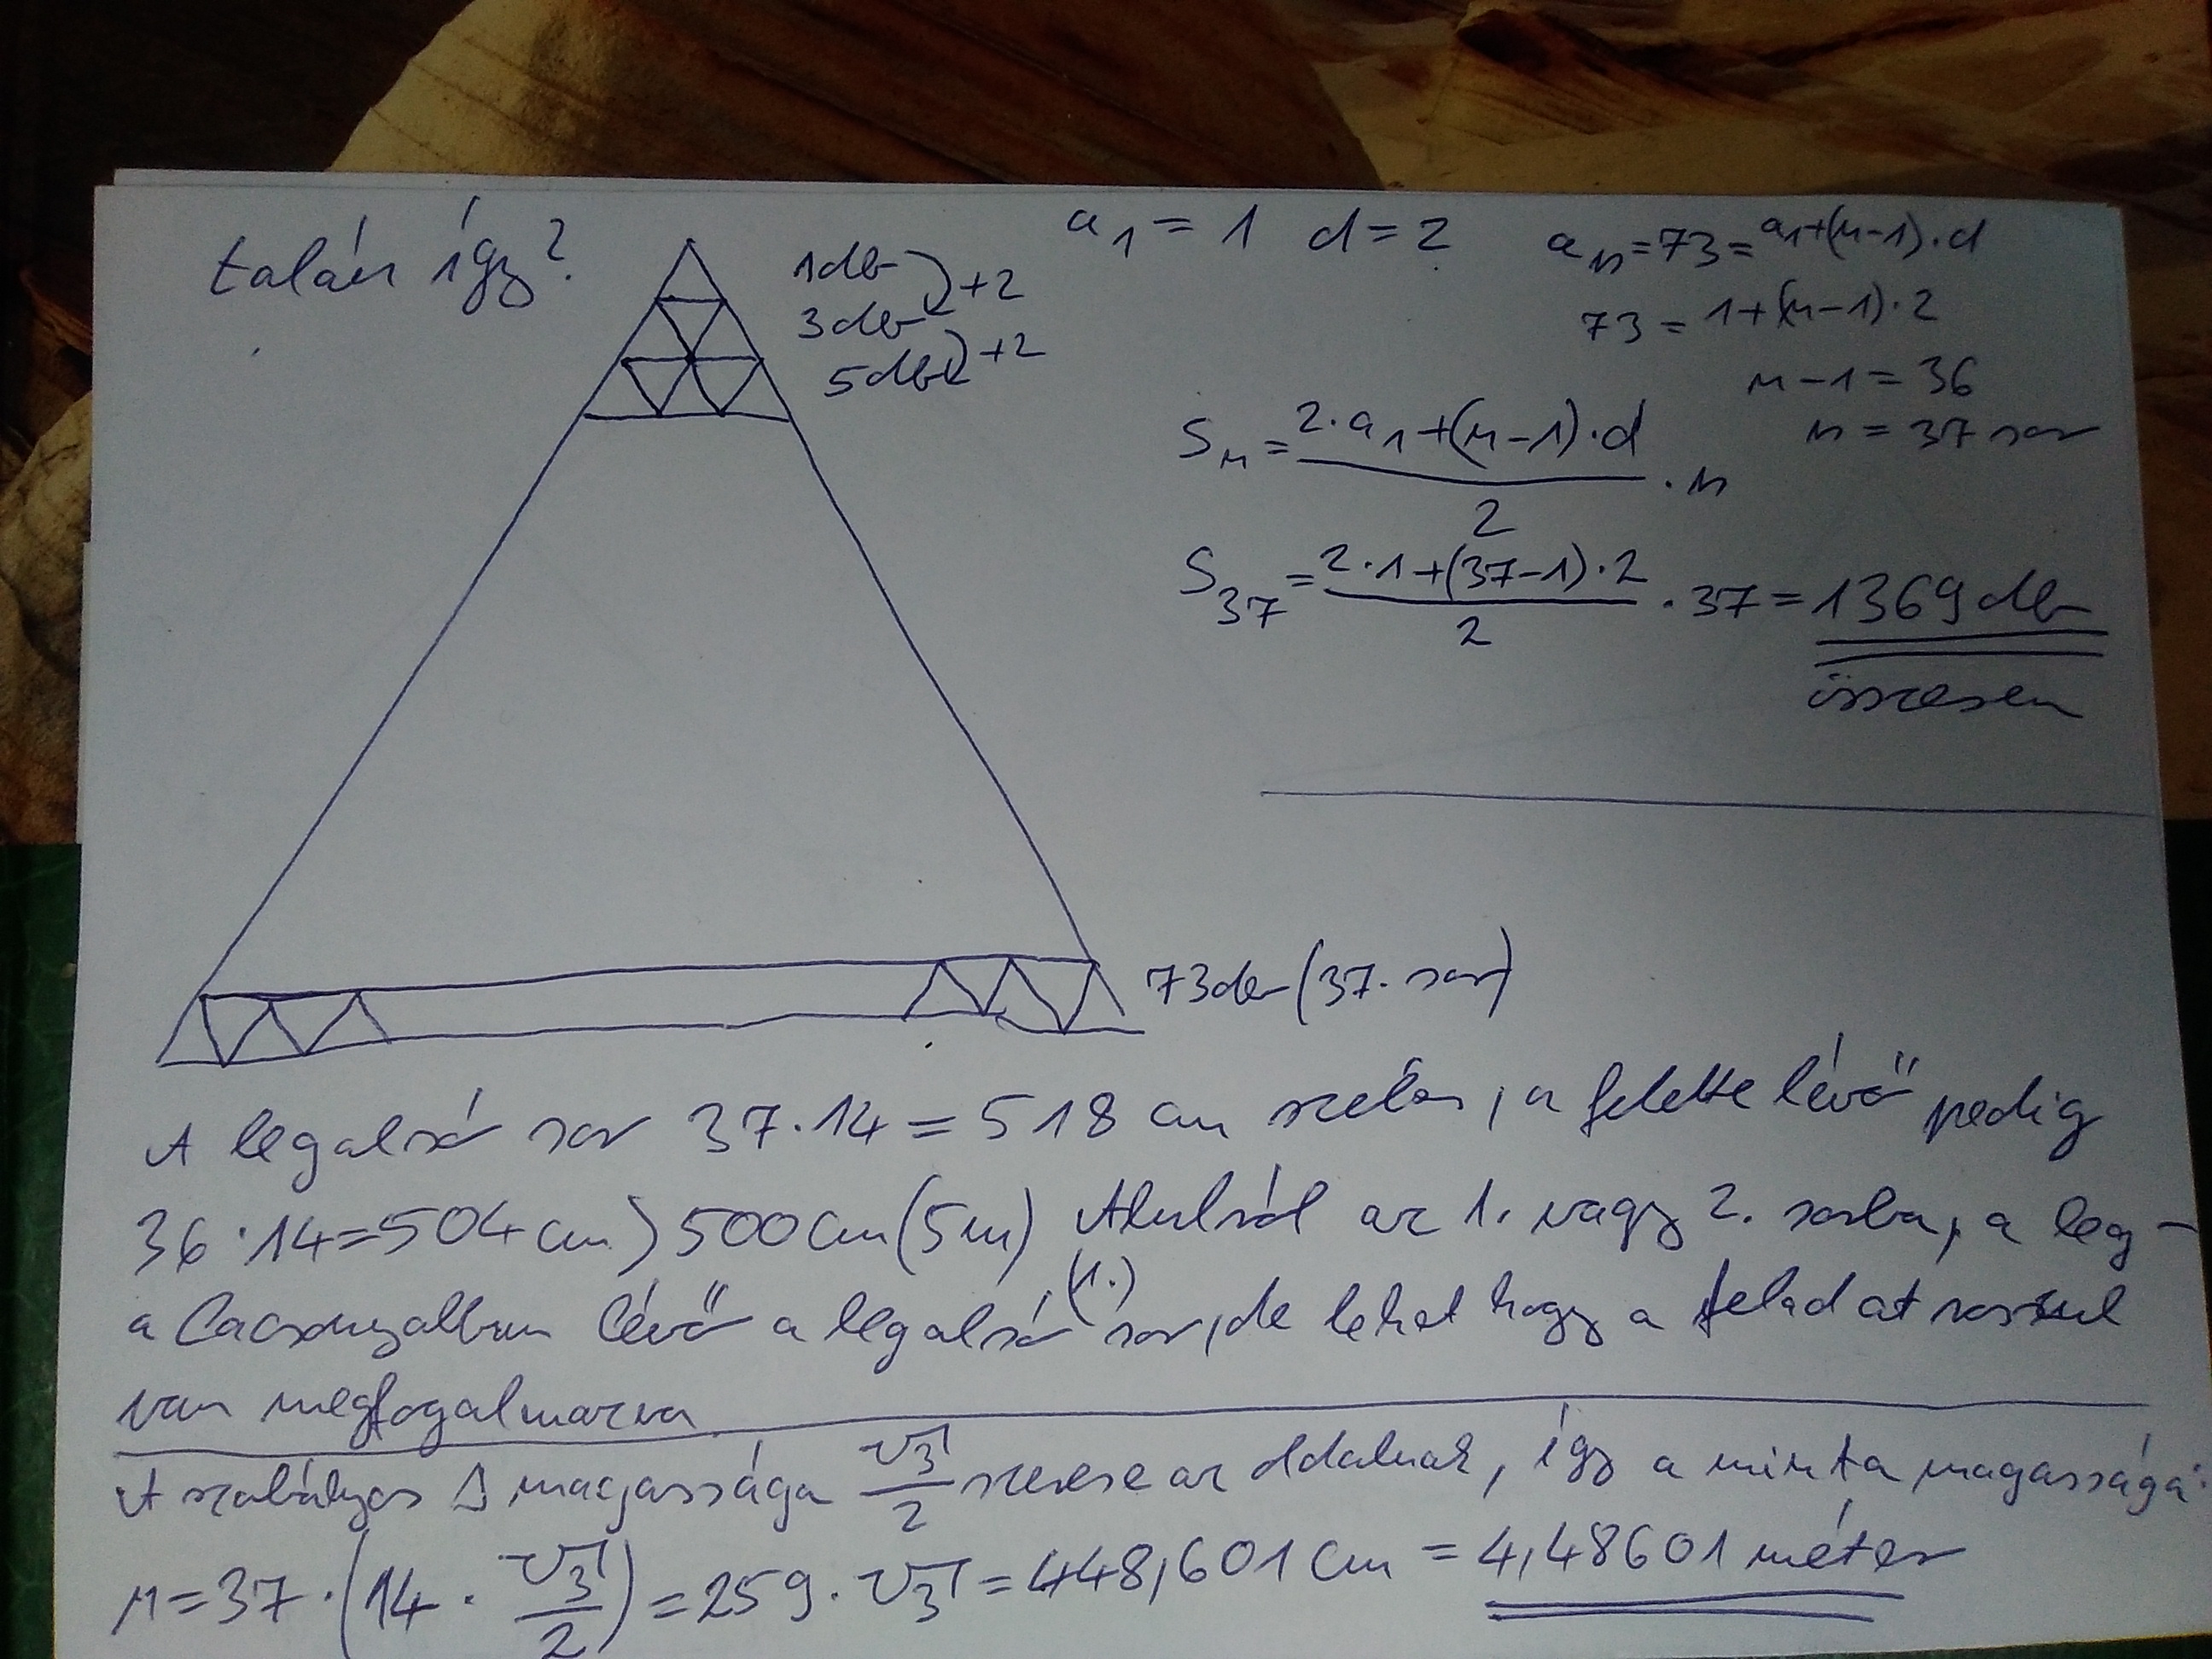 talán így?
1db
+2
3db
+2
5db
a₁ = 1 d = 2
aₙ = 73 = a₁+(n-1)·d
73 = 1+(n-1)·2
n-1 = 36
n = 37 sor
Sₙ = (2·a₁+(n-1)·d)/2 · n
S₃₇ = (2·1+(37-1)·2)/2 · 37 = 1369 db
összesen
73db (37. sor)
A legalsó sor 37·14 = 518 cm széles, a felette lévő pedig
36·14=504 cm > 500 cm (5m) Alulról az 1. vagy 2. sorba, a leg-
alacsonyabban lévő a legalsó (1.) sor, de lehet hogy a feladat rosszul
van megfogalmazva
A szabályos Δ magassága √3/2 szerese az oldalnak, így a minta magassága:
M = 37·(14·√3/2) = 259·√3 = 448,601 cm = 4,48601 méter